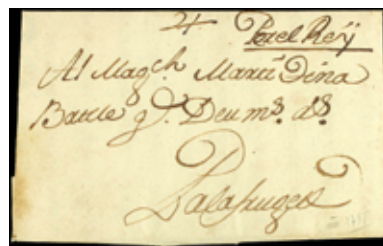 Per el Reÿ
Al Magch. Martí Dina
Batlle q D. Deu ms. as.
Palafrugell